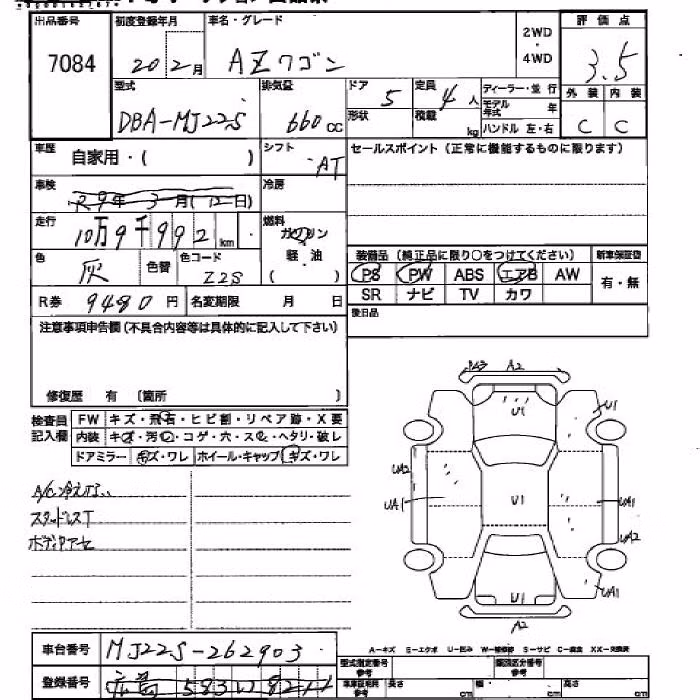 出品番号 初度登録年月 車名・グレード 2WD・4WD 評価点
7084 20 2月 AZワゴン 3.5
型式 排気量 ドア 定員 ディーラー・並行 外装 内装
DBA-MJ22S 660cc 5 4人 モデル年式 年 C C
形状 積載 kg ハンドル 左・右
車歴 自家用・( ) シフト AT セールスポイント (正常に機能するものに限ります)
車検 R9年3月(12日) 冷房
走行 10万9千992km 燃料 ガソリン
色 灰 色替 色コード Z2S 軽・油 ( )
装備品 (純正品に限り○をつけてください) 新車保証書
PS PW ABS エアB AW 有・無
SR ナビ TV カワ
R券 9480円 名変期限 月 日
後日品
注意事項申告欄(不具合内容等は具体的に記入して下さい)
修復歴 有 〔箇所 〕
検査員記入欄 FW キズ・飛石・ヒビ割・リペア跡・X要
内装 キズ・汚れ・コゲ・穴・スレ・ヘタリ・破レ
ドアミラー キズ・ワレ ホイール・キャップ キズ・ワレ
A2
U1
U1
A/C冷えない
UA2
UA1 U1 UA1
スタッドレスT
UA2
ボディUアセ
U1 UA1
A2
A-キズ E-エクボ U-凹み W-補修跡 S-サビ C-腐食 XX-交換済
車台番号 MJ22S-262903
型式指定番号 参考 類別区分番号 参考
登録番号 583
車庫証明用 参考 長さ cm 幅 cm 高さ cm